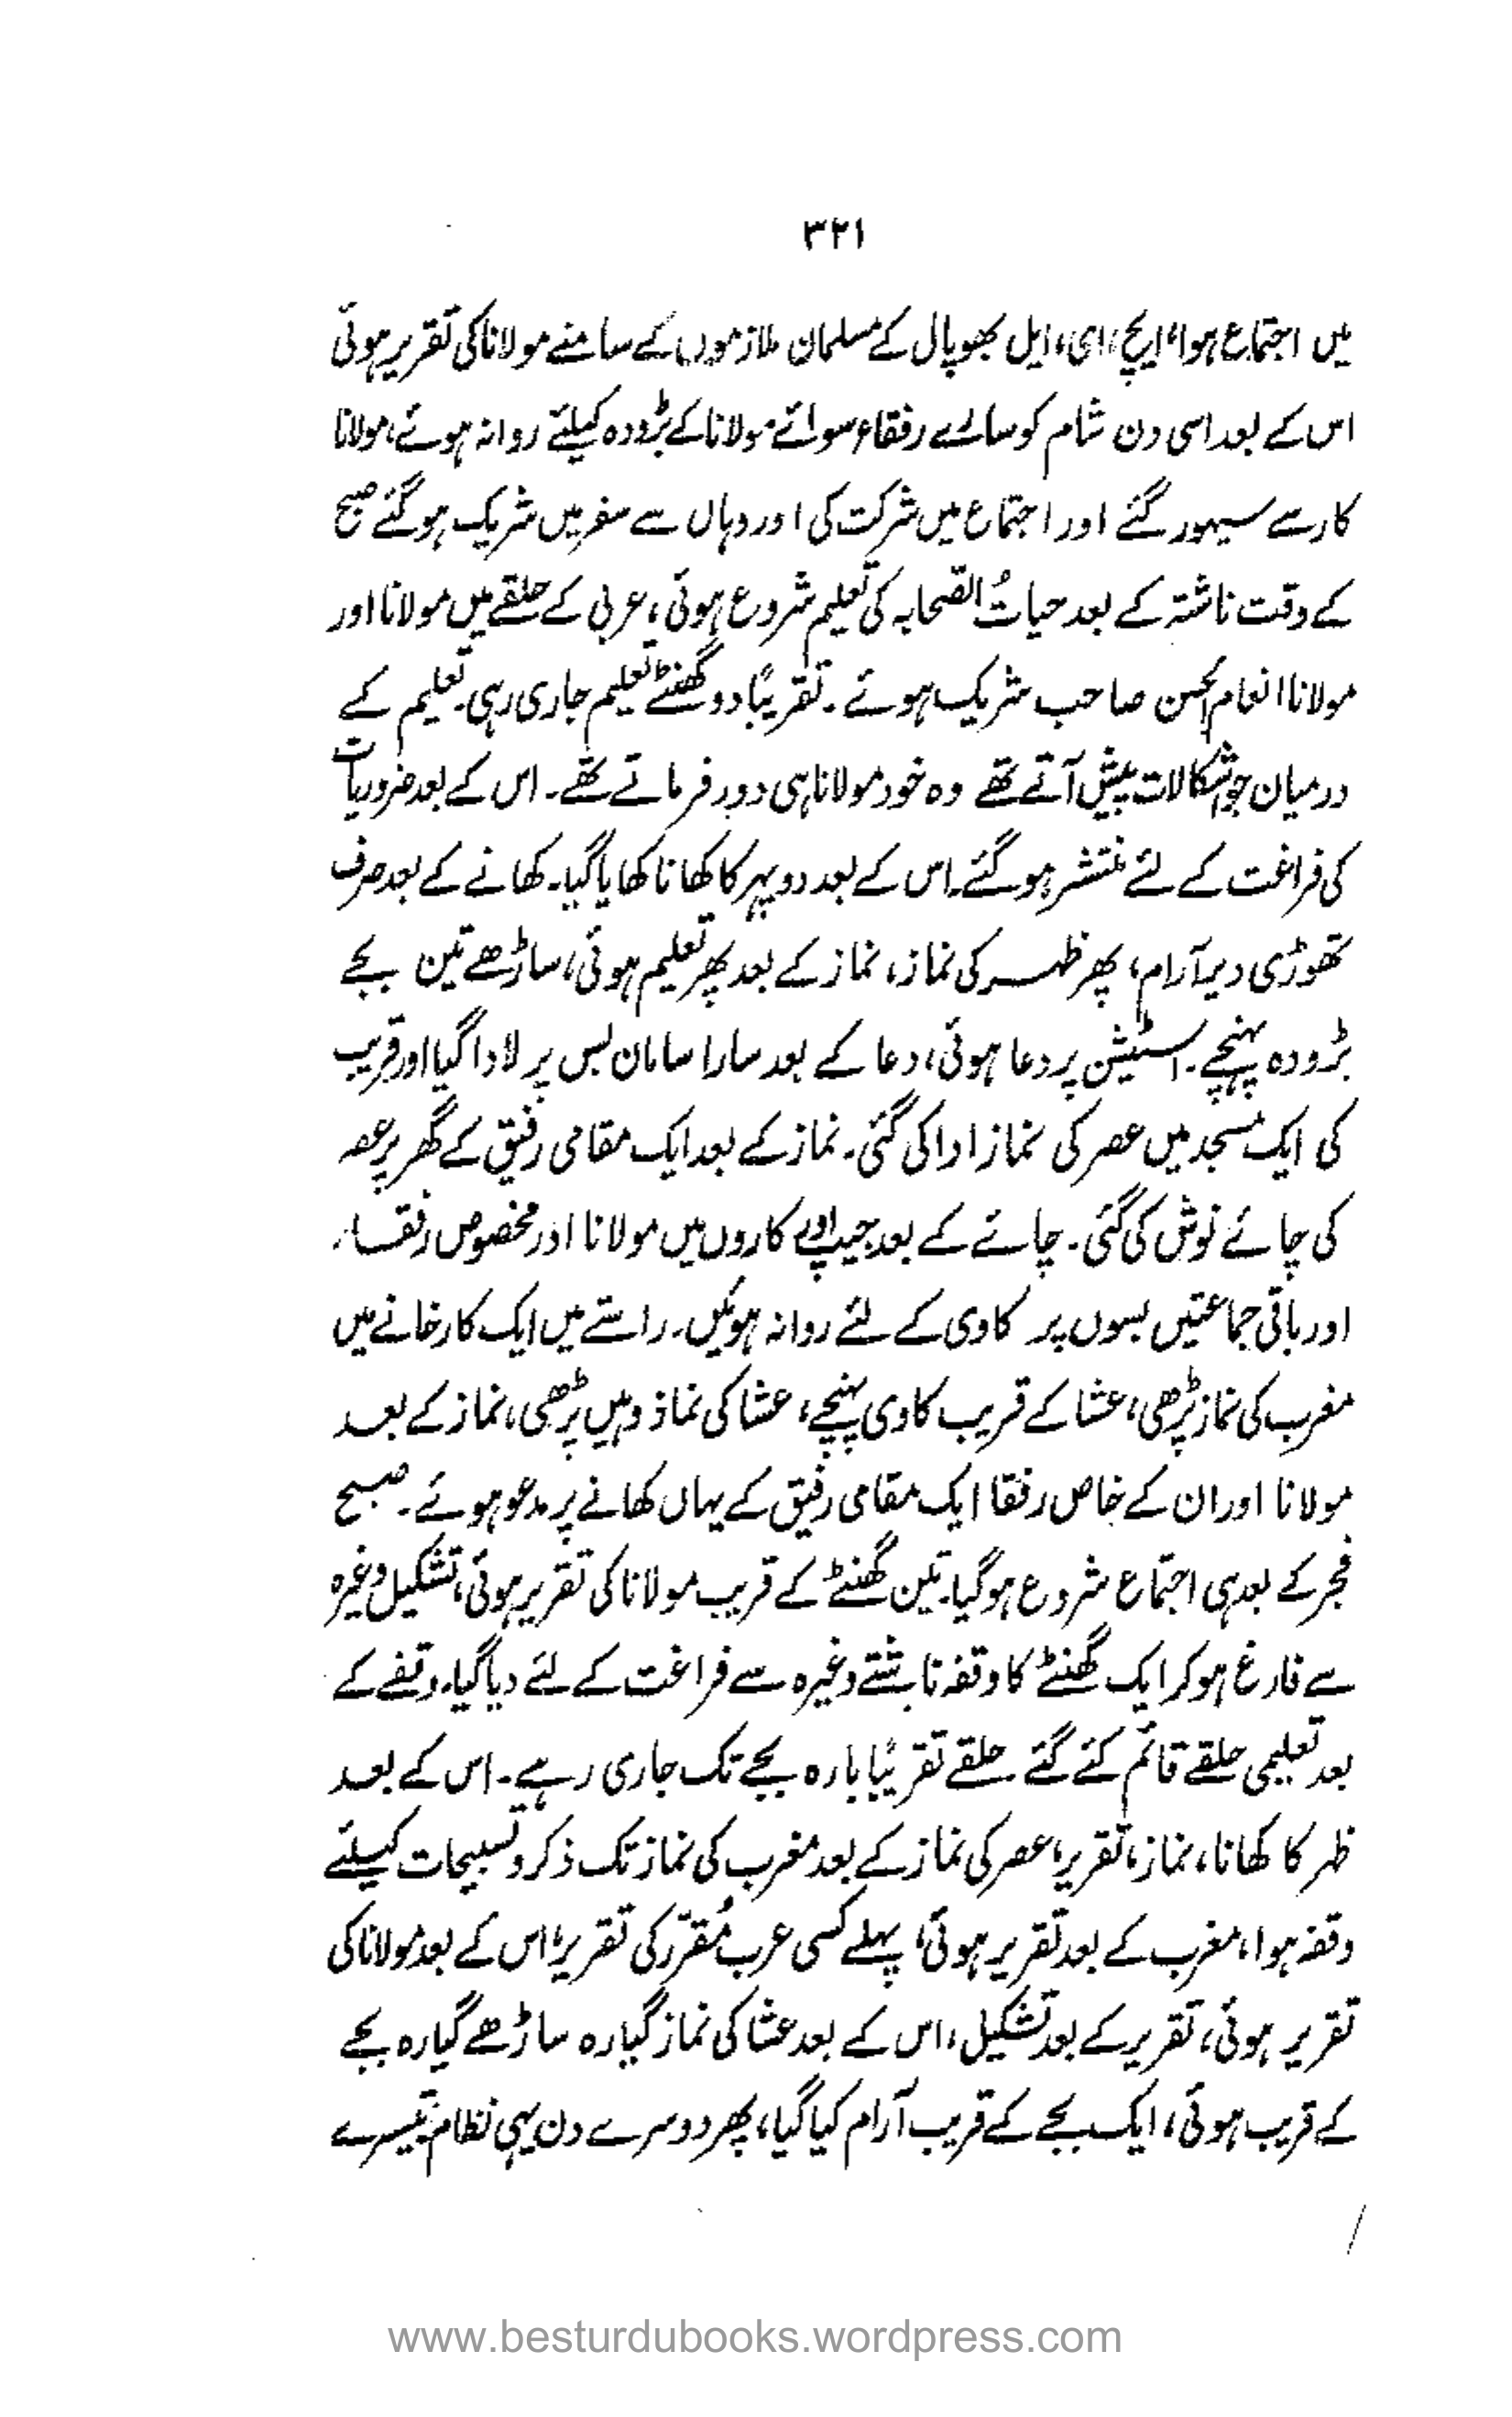 ۳۲۱
میں اجتماع ہوا، ایچ، ای، ایل بھوپال کے مسلمان ملازموں کے سامنے مولانا کی تقریر ہوئی
اس کے بعد اسی دن شام کو سارے رفقاء سوائے مولانا کے بڑودہ کیلئے روانہ ہوئے، مولانا
کار سے سیہور گئے اور اجتماع میں شرکت کی اور وہاں سے سفر میں شریک ہو گئے صبح
کے وقت ناشتہ کے بعد حیاتُ الصّحابہ کی تعلیم شروع ہوئی، عربی کے حلقے میں مولانا اور
مولانا انعام الحسن صاحب شریک ہوئے۔ تقریباً دو گھنٹے تعلیم جاری رہی۔ تعلیم کے
درمیان جو اشکالات پیش آتے تھے وہ خود مولانا ہی دور فرماتے تھے۔ اس کے بعد ضروریات
کی فراغت کے لئے منتشر ہو گئے۔ اس کے بعد دوپہر کا کھانا کھایا گیا۔ کھانے کے بعد صرف
تھوڑی دیر آرام، پھر ظہر کی نماز، نماز کے بعد پھر تعلیم ہوئی، ساڑھے تین بجے
بڑودہ پہنچے۔ اسٹیشن پر دعا ہوئی، دعا کے بعد سارا سامان بس پر لادا گیا اور قریب
کی ایک مسجد میں عصر کی نماز ادا کی گئی۔ نماز کے بعد ایک مقامی رفیق کے گھر پر عصر
کی چائے نوش کی گئی۔ چائے کے بعد جیپ اور کاروں میں مولانا اور مخصوص رفقاء
اور باقی جماعتیں بسوں پر کاوی کے لئے روانہ ہوئیں۔ راستے میں ایک کارخانے میں
مغرب کی نماز پڑھی، عشا کے قریب کاوی پہنچے، عشا کی نماز وہیں پڑھی، نماز کے بعد
مولانا اور ان کے خاص رفقا ایک مقامی رفیق کے یہاں کھانے پر مدعو ہوئے۔ صبح
فجر کے بعد ہی اجتماع شروع ہو گیا۔ تین گھنٹے کے قریب مولانا کی تقریر ہوئی، تشکیل وغیرہ
سے فارغ ہو کر ایک گھنٹے کا وقفہ ناشتے وغیرہ سے فراغت کے لئے دیا گیا۔ وقفے کے
بعد تعلیمی حلقے قائم کئے گئے حلقے تقریباً بارہ بجے تک جاری رہے۔ اس کے بعد
ظہر کا کھانا، نماز، تقریر، عصر کی نماز کے بعد مغرب کی نماز تک ذکر و تسبیحات کیلئے
وقفہ ہوا، مغرب کے بعد تقریر ہوئی، پہلے کسی عرب مُقرّر کی تقریر، اس کے بعد مولانا کی
تقریر ہوئی، تقریر کے بعد تشکیل، اس کے بعد عشا کی نماز گیارہ ساڑھے گیارہ بجے
کے قریب ہوئی، ایک بجے کے قریب آرام کیا گیا، پھر دوسرے دن یہی نظام، تیسرے
www.besturdubooks.wordpress.com